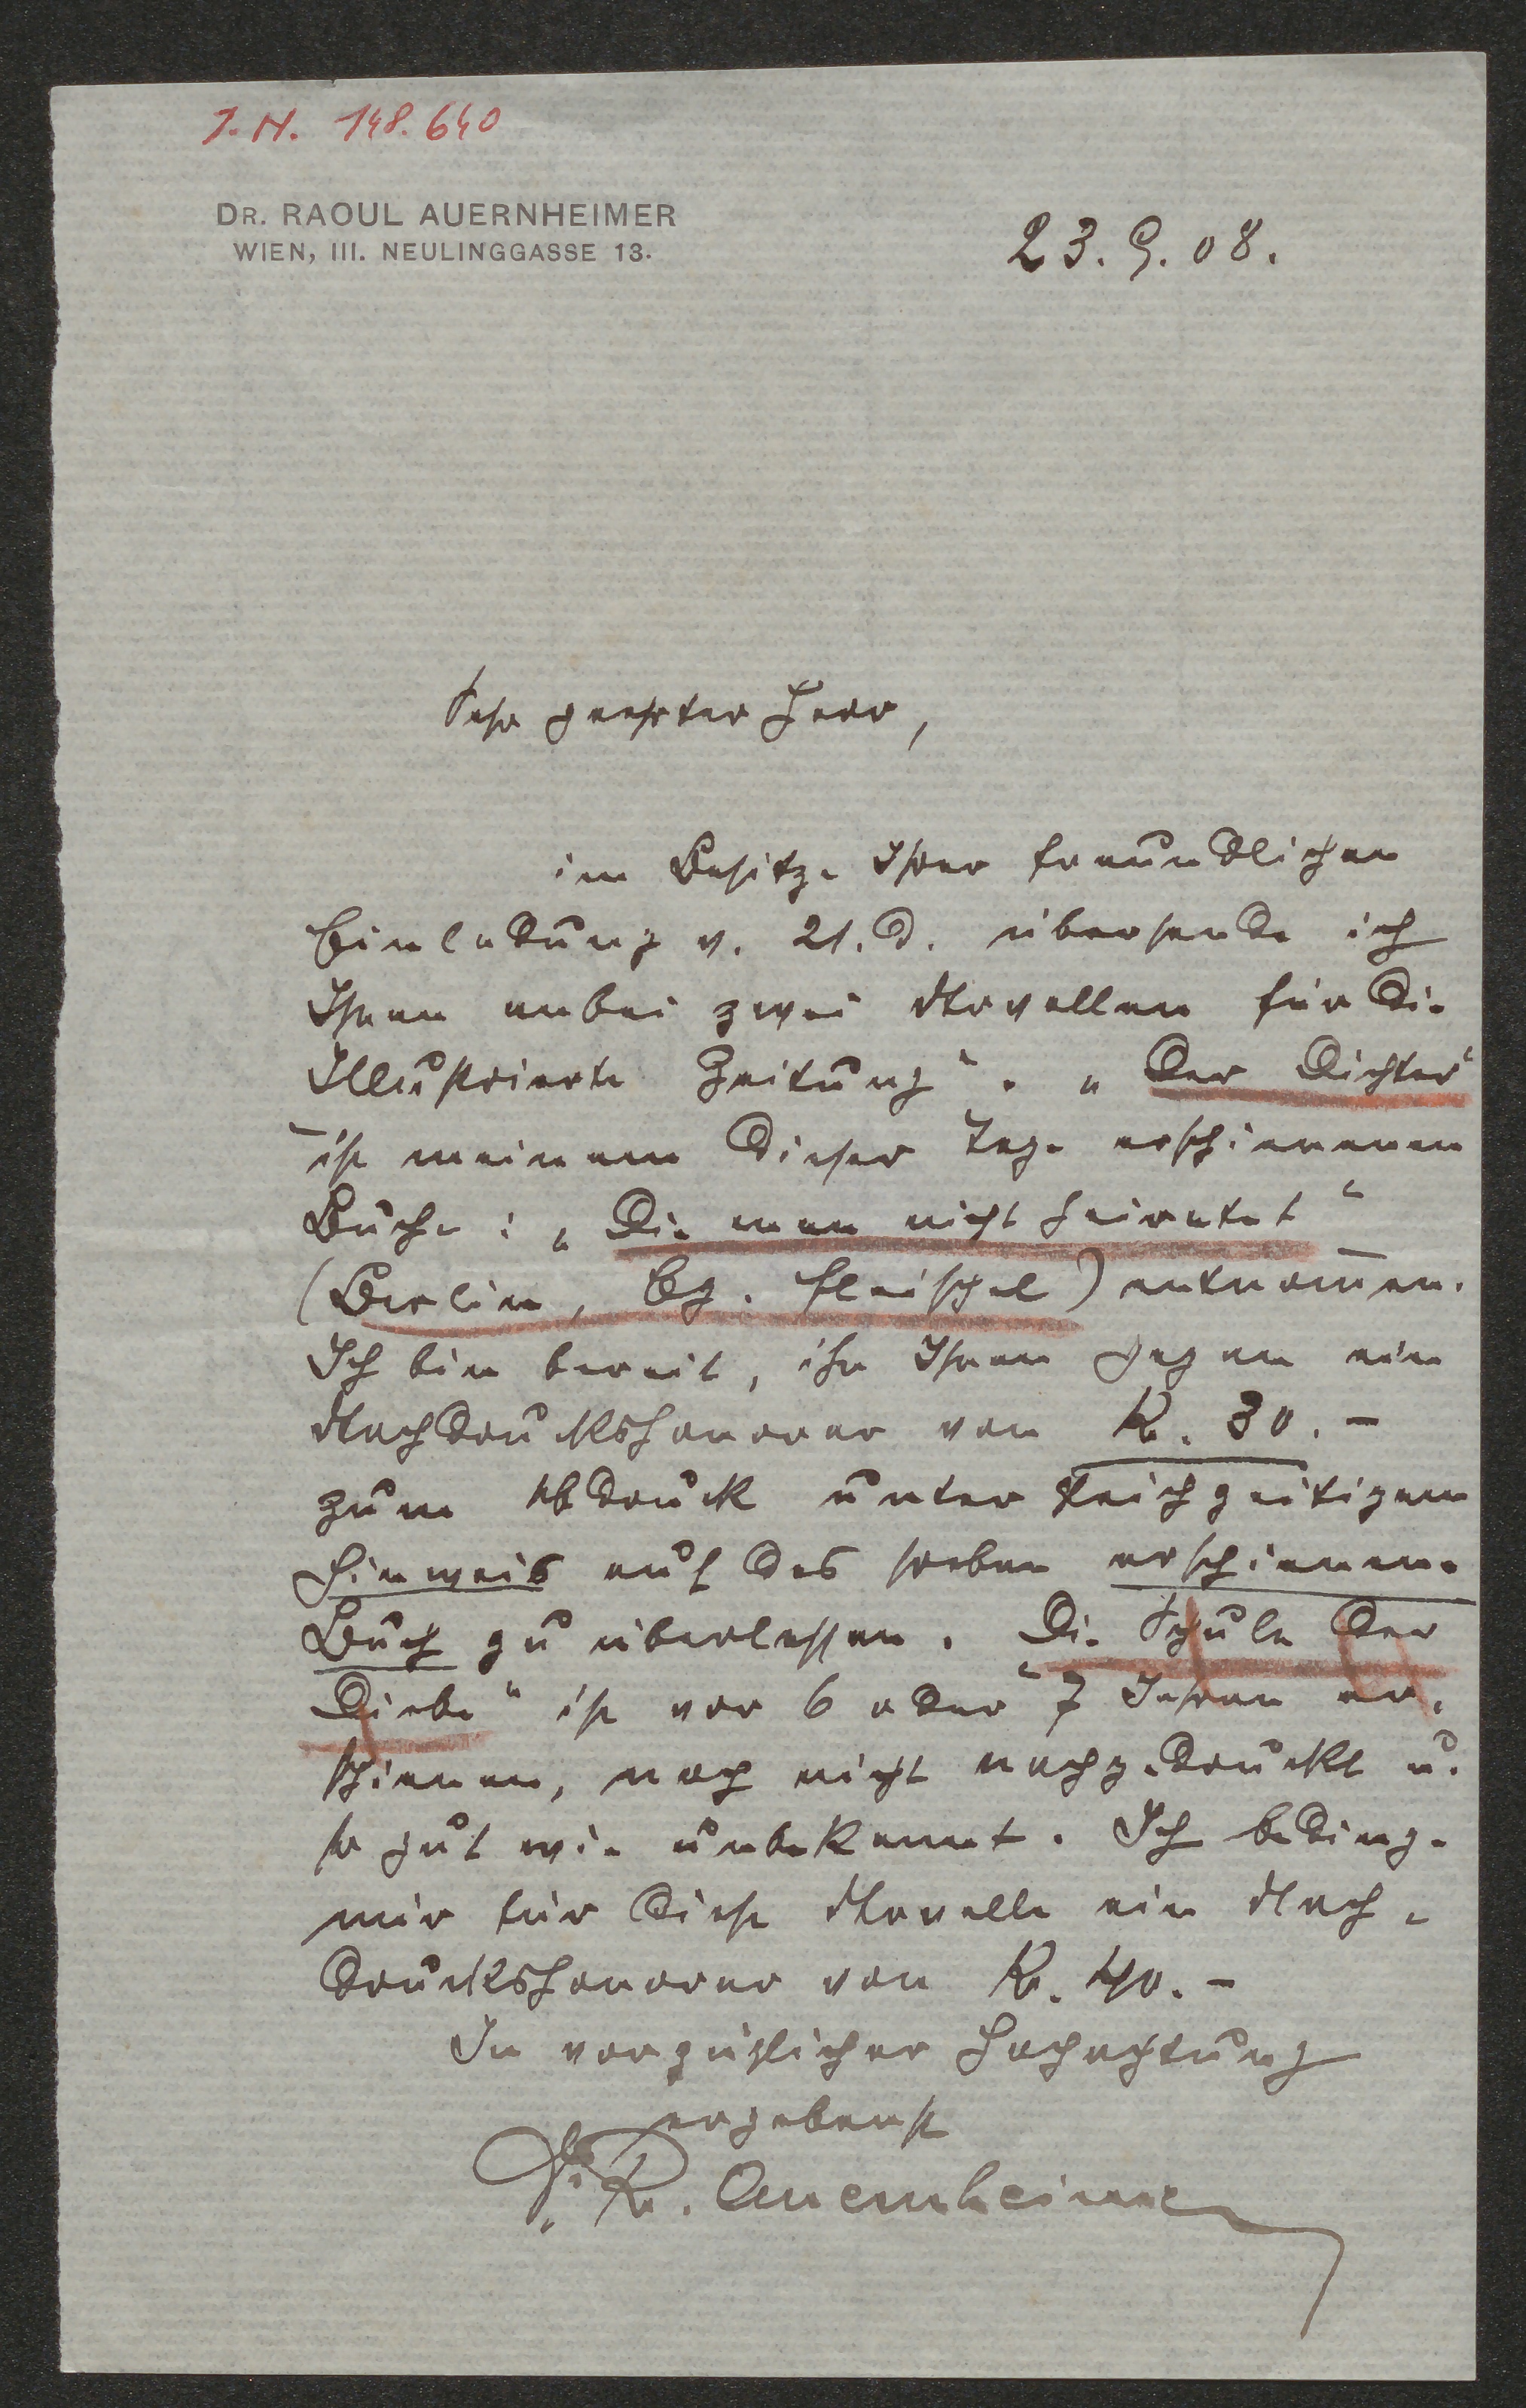 J. N. 148.640
DR. RAOUL AUERNHEIMER
WIEN, III. NEULINGGASSE 13.
23. 9. 08.
Sehr geehrter Herr,
im Besitze Ihrer freundlichen
Einladung v. 21. d. übersende ich
Ihnen anbei zwei Novellen für die
Illustrierte Zeitung“. „Der Dichter“
ist meinem dieser Tage erschienenen
Buche: „Die man nicht heiratet“
(Berlin, Eg. Fleischel) entnom̅en.
Ich bin bereit, ihn Ihnen gegen ein
Nachdruckshonorar von K. 30.–
zum Abdruck unter gleichzeitigem
Hinweis auf das soeben erschienene
Buch zu überlassen. Die Schule der
Diebe“ ist vor 6 oder 7 Jahren er-
schienen, noch nicht nachgedruckt u.
so gut wie unbekannt. Ich bedinge
mir für diese Novelle ein Nach-
druckshonorar von K. 40.–
In vorzüglicher Hochachtung
ergebenst
Dr. R. Auernheimer